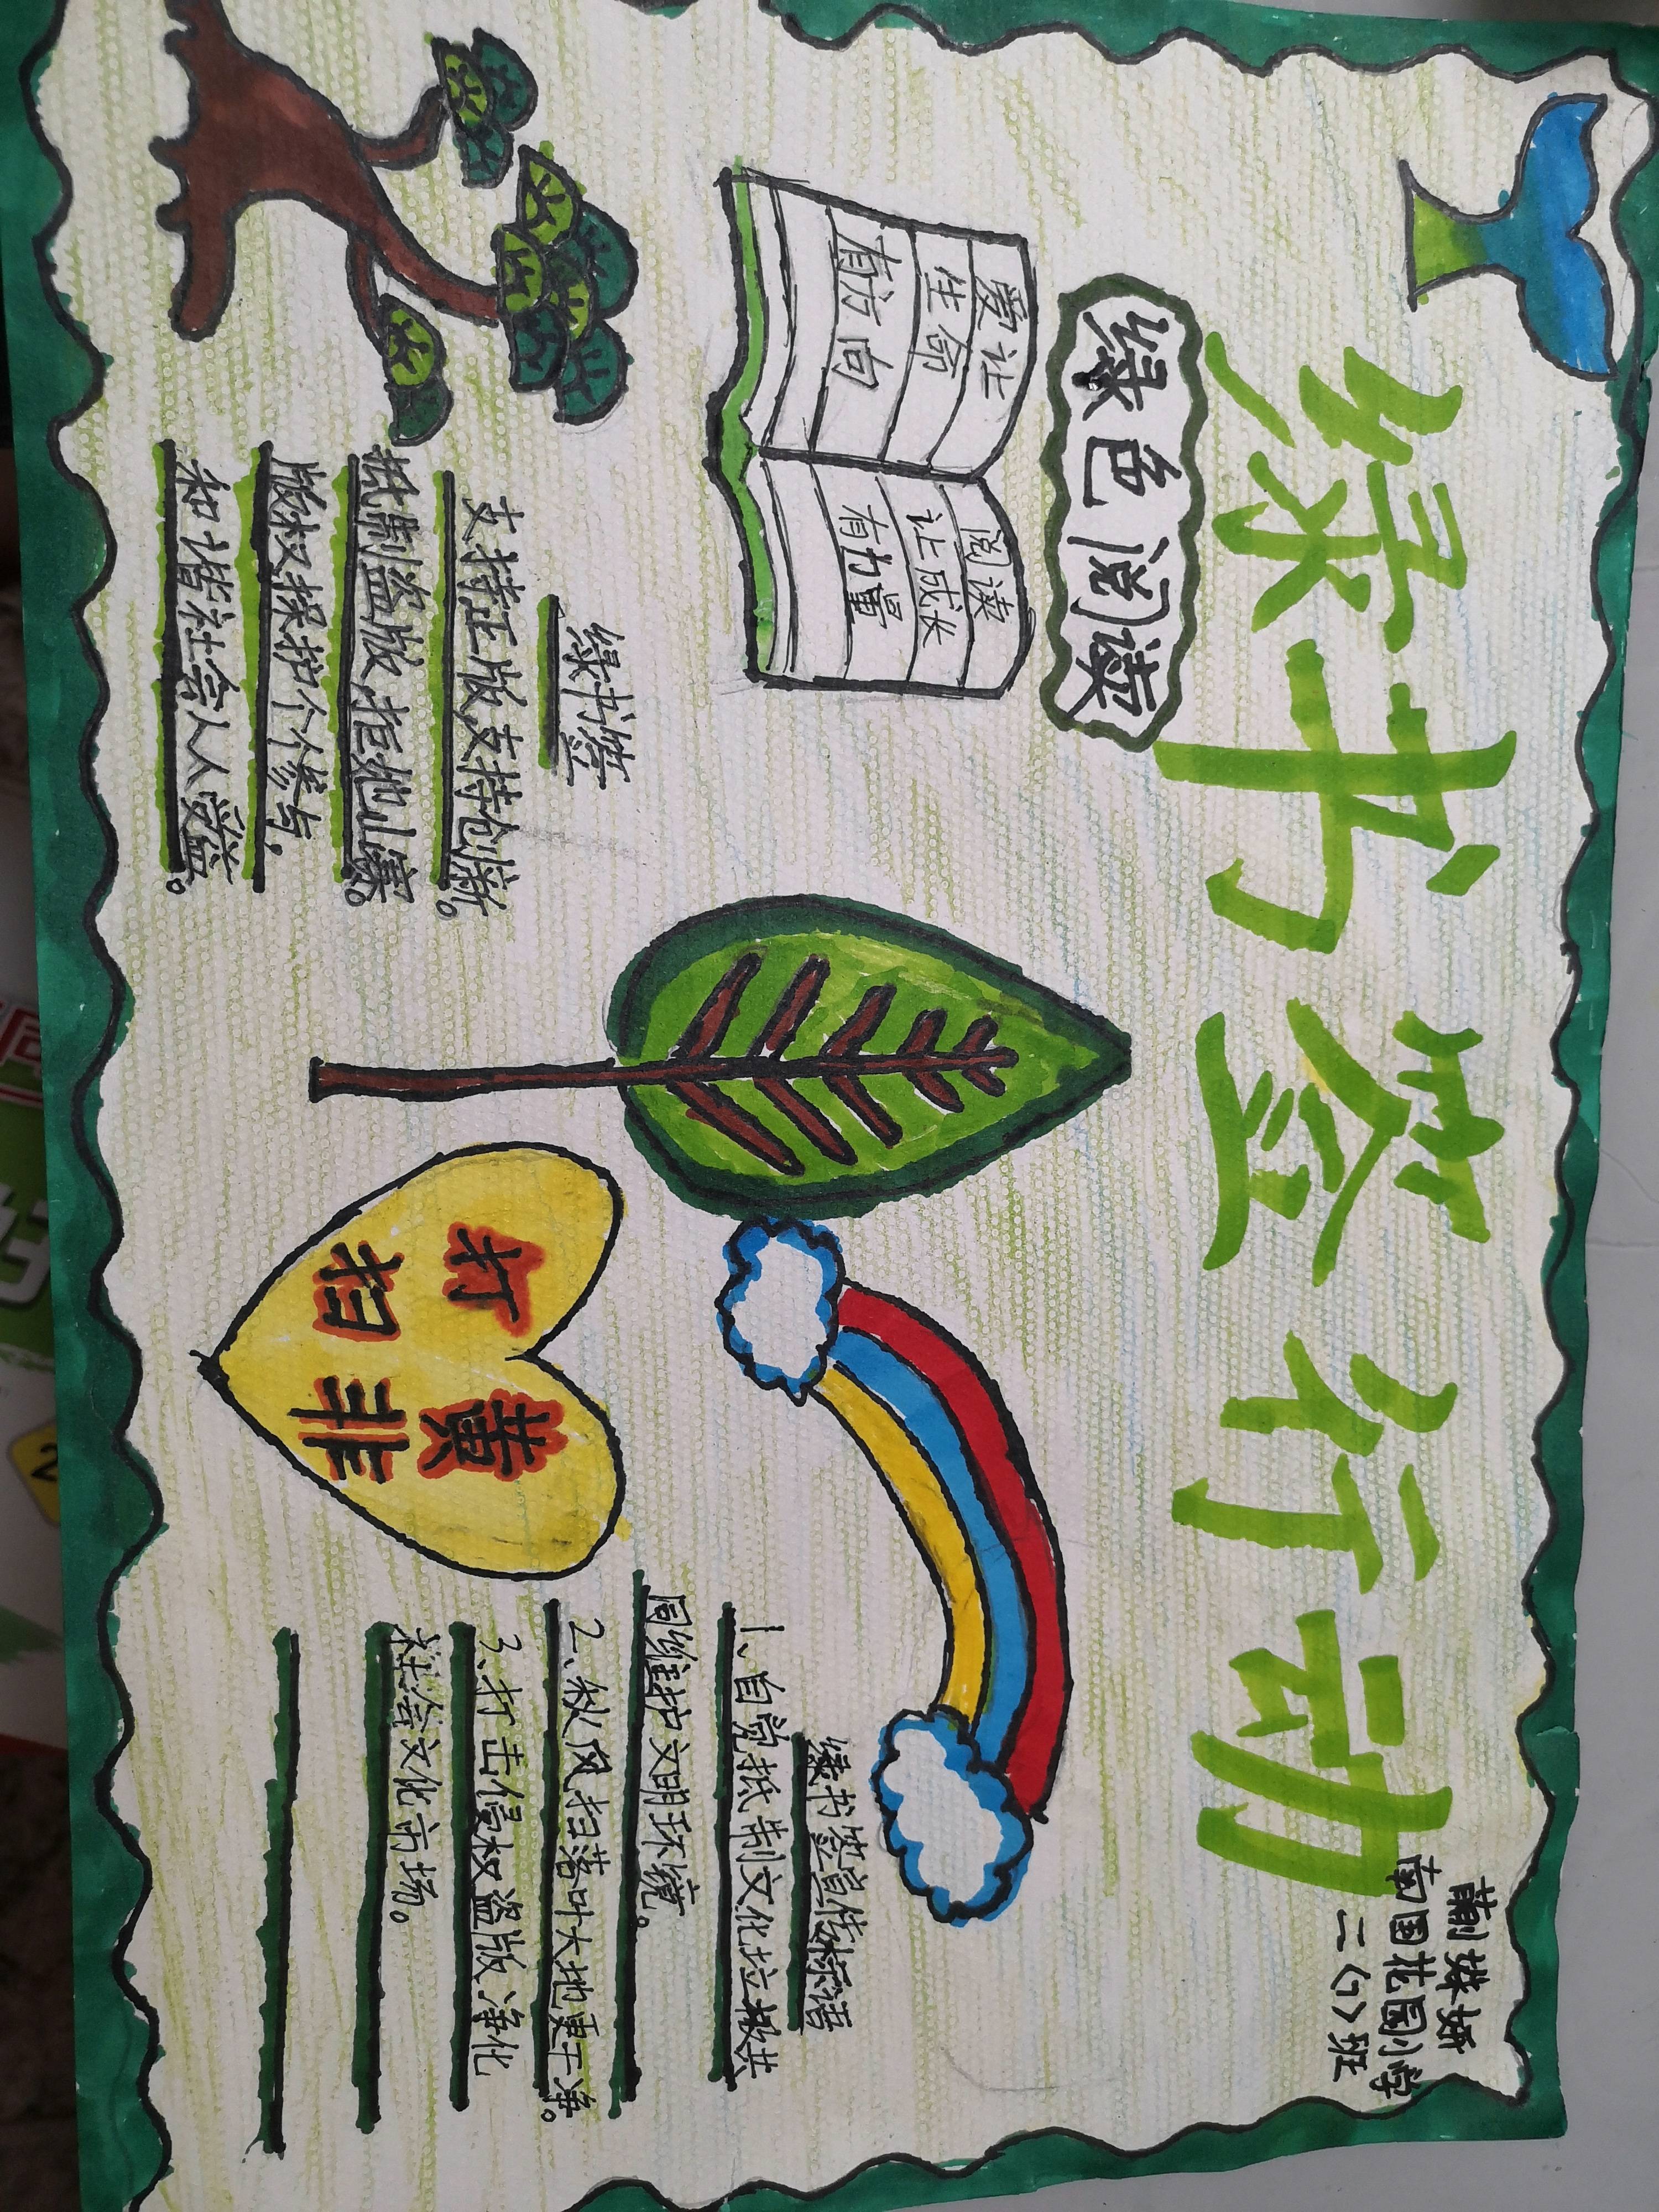 绿书签行动
南国花园小学
二〈7〉班
绿色阅读
爱让
生命
有方向
阅读
让成长
有力量
绿书签
支持正版,支持创新。
抵制盗版,拒绝山寨。
版权保护个个参与,
和谐社会人人受益。
打黄
扫非
绿书签宣传标语
1、自觉抵制文化垃圾共
同维护文明环境。
2、秋风扫落叶大地更干净。
3、打击侵权盗版,净化
社会文化市场。